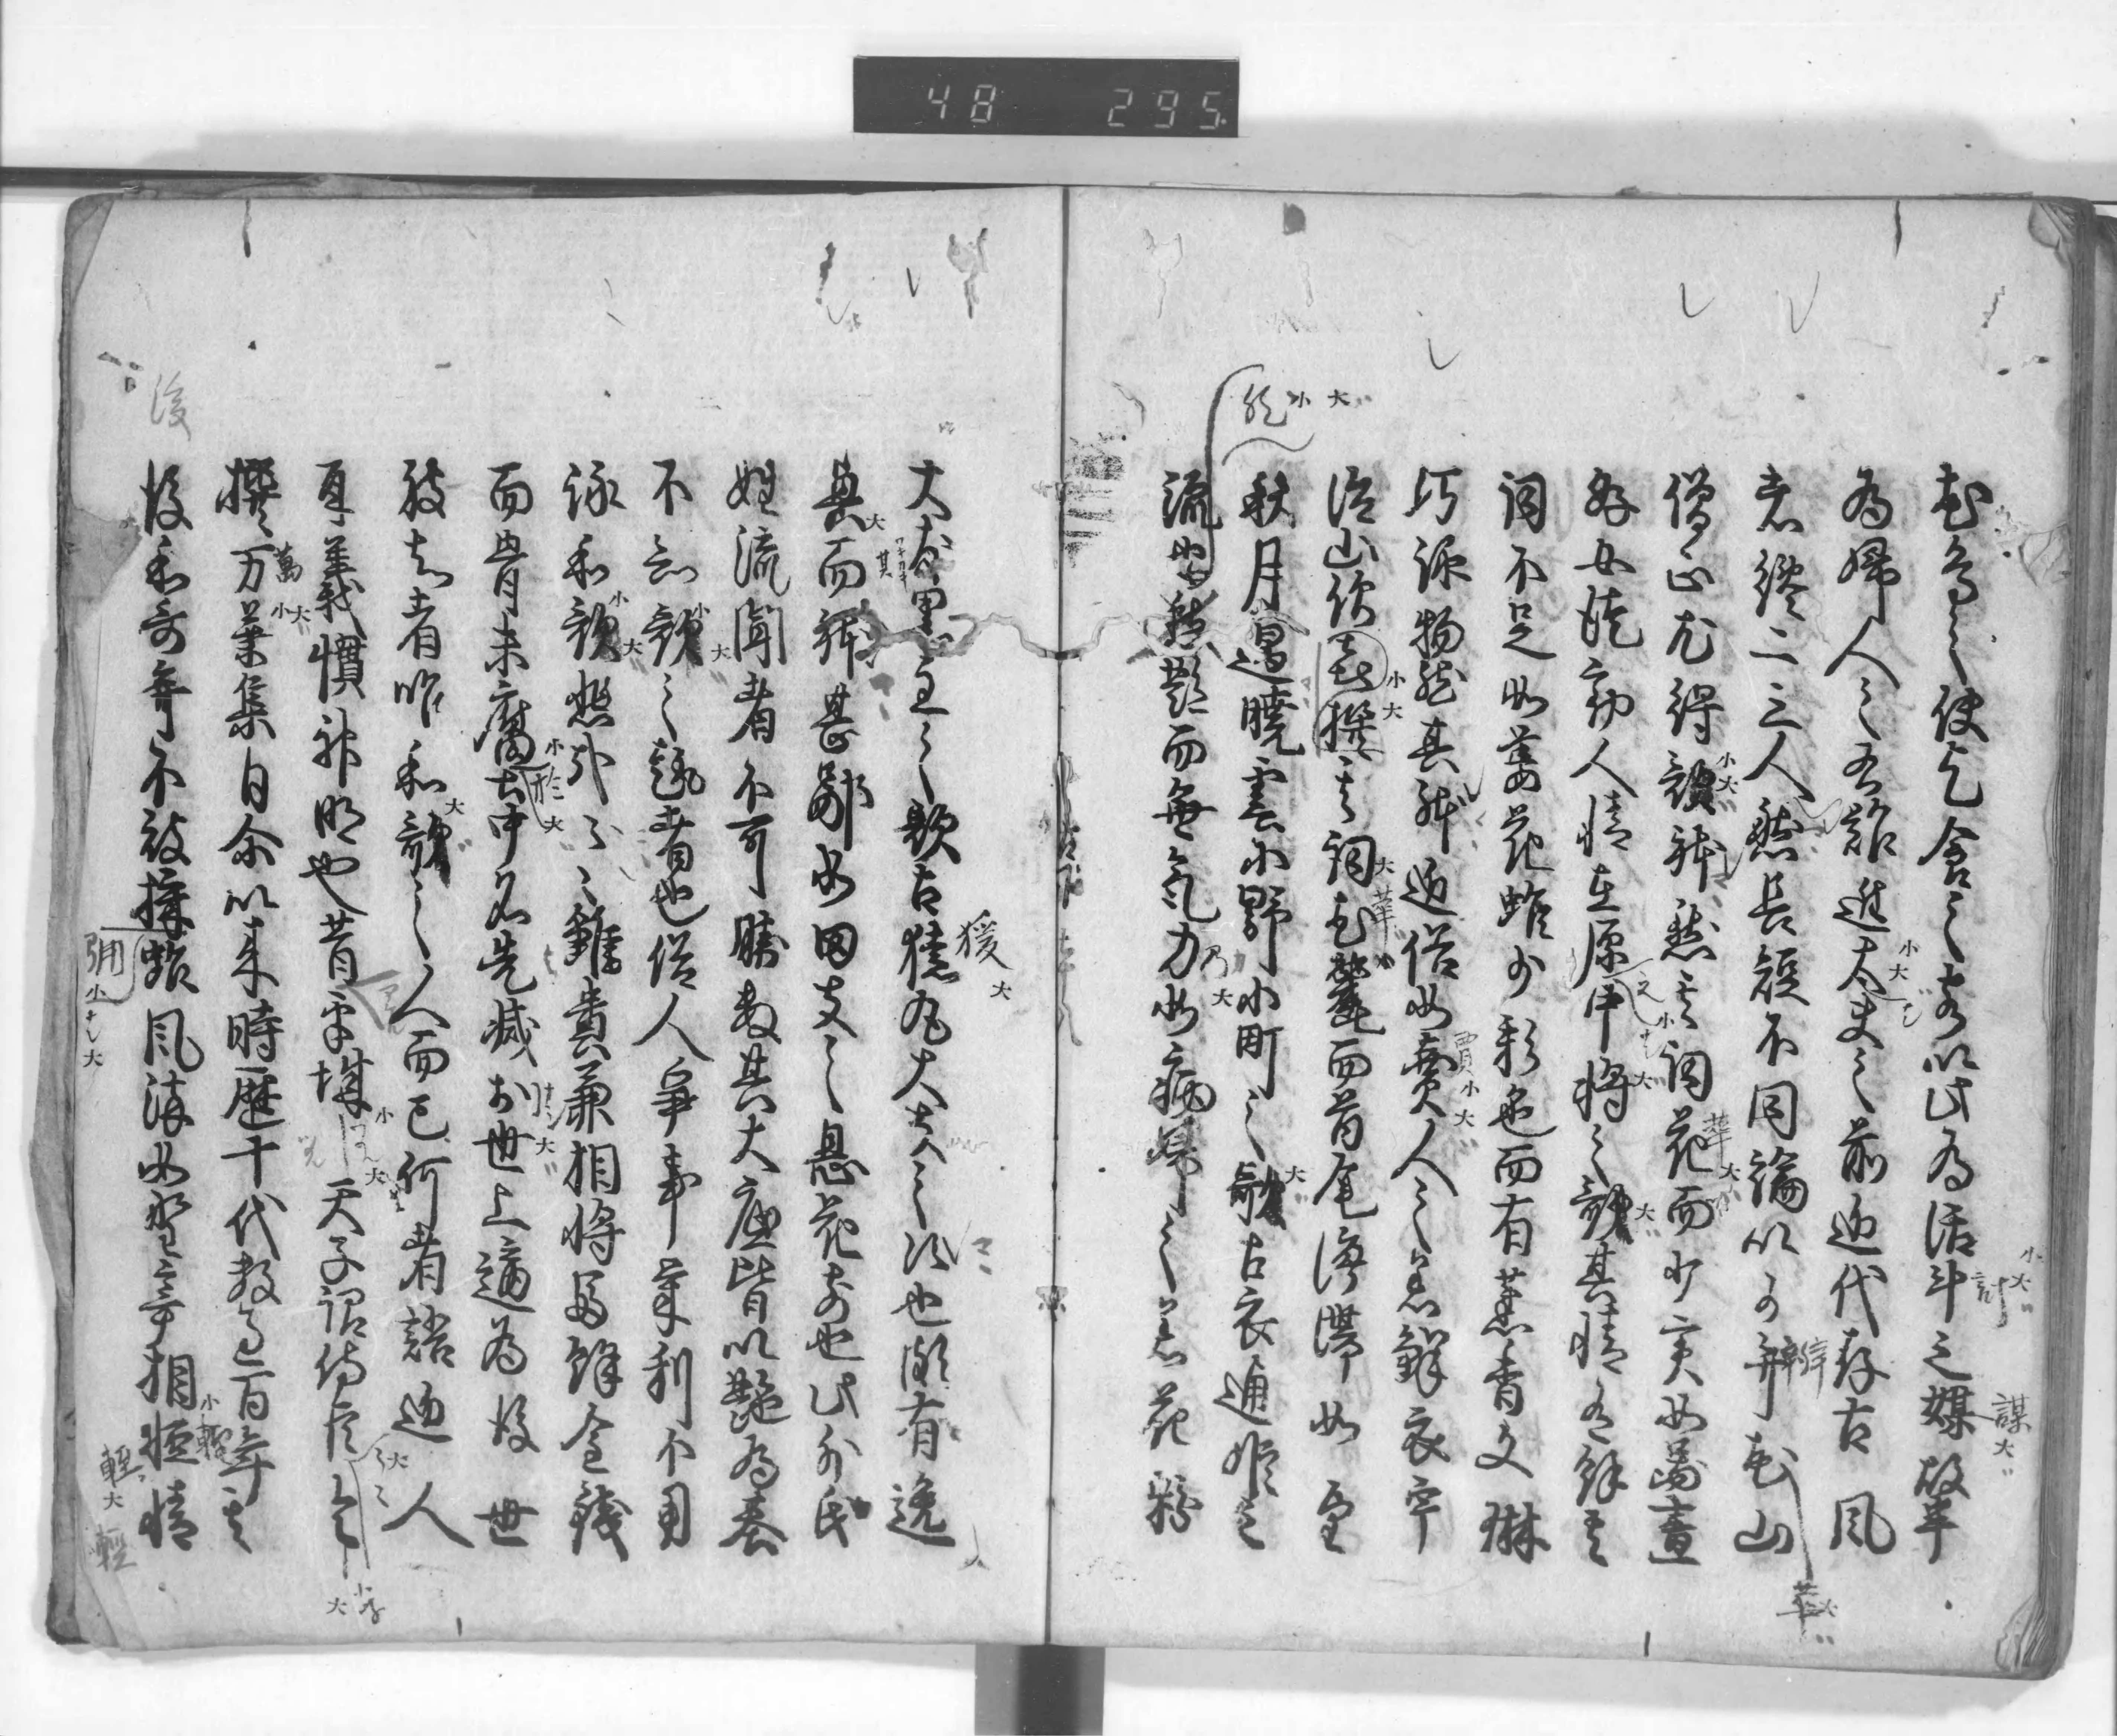 48 295
花鳥之使乞食之客以此為活計之媒故半
為婦人之右難進大夫之前近代存古風
者纔二三人然長短不同論以可弁花山
僧正尤得歌躰然其詞花而少実如図画
好女徒動人情在原中将之歌其情有余其
詞不足如萎花雖少彩色而有薫香文琳
巧詠物然其躰近俗如賈人之着鮮衣宇
治山僧喜撰其詞花麗而首尾停滞如望
秋月遇暁雲小野小町之歌古衣通姫之
流也然艶而無気力如病婦之着花粉
大友黒主之歌古猿丸大夫之次也頗有逸
興而躰甚鄙如田夫之息花前也此外氏
姓流聞者不可勝数其大底皆以艶為基
不知歌之趣者也俗人争事栄利不用
詠和歌悲哉々々雖貴兼相将富余金銭
而骨未腐土中名先滅於世上適為後世
被知者唯和歌之人而已何者語近人
耳義慣神明也昔平城天子詔侍臣令
撰万葉集自尓以来時歴十代数過百年其
後和歌弃不被採雖風流如野宰相軽情